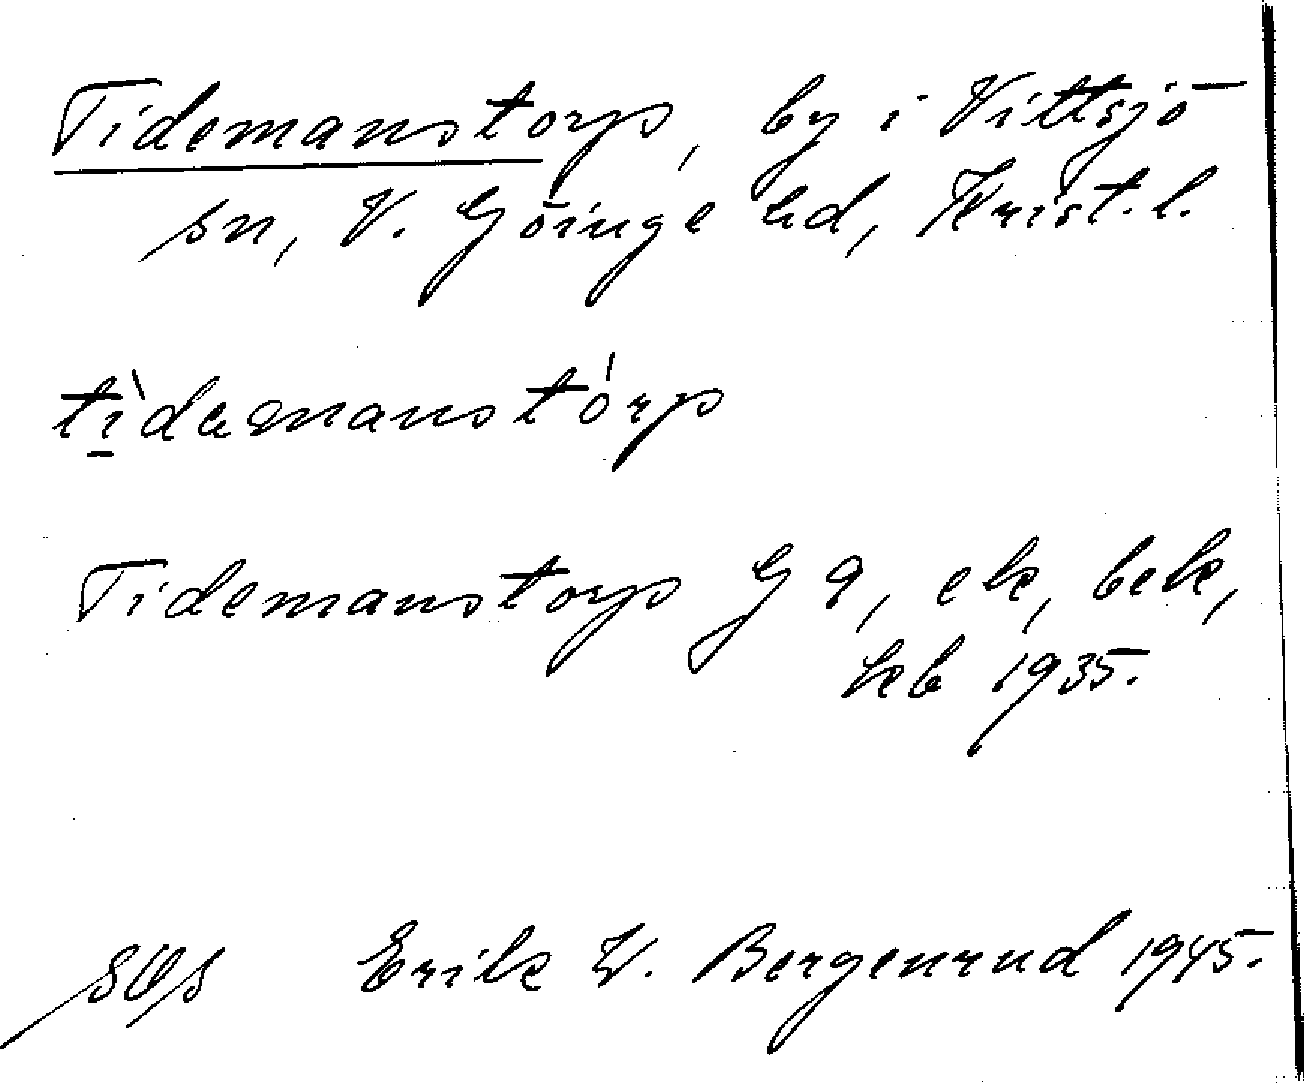 Tidemanstorp, by i Vittsjö
sn, V. Göinge hd, Krist. l.
tìdemanstórp
Tidemanstorp G 9, ek, bek,
keb 1935.
Erik W. Bergenrud 1945.